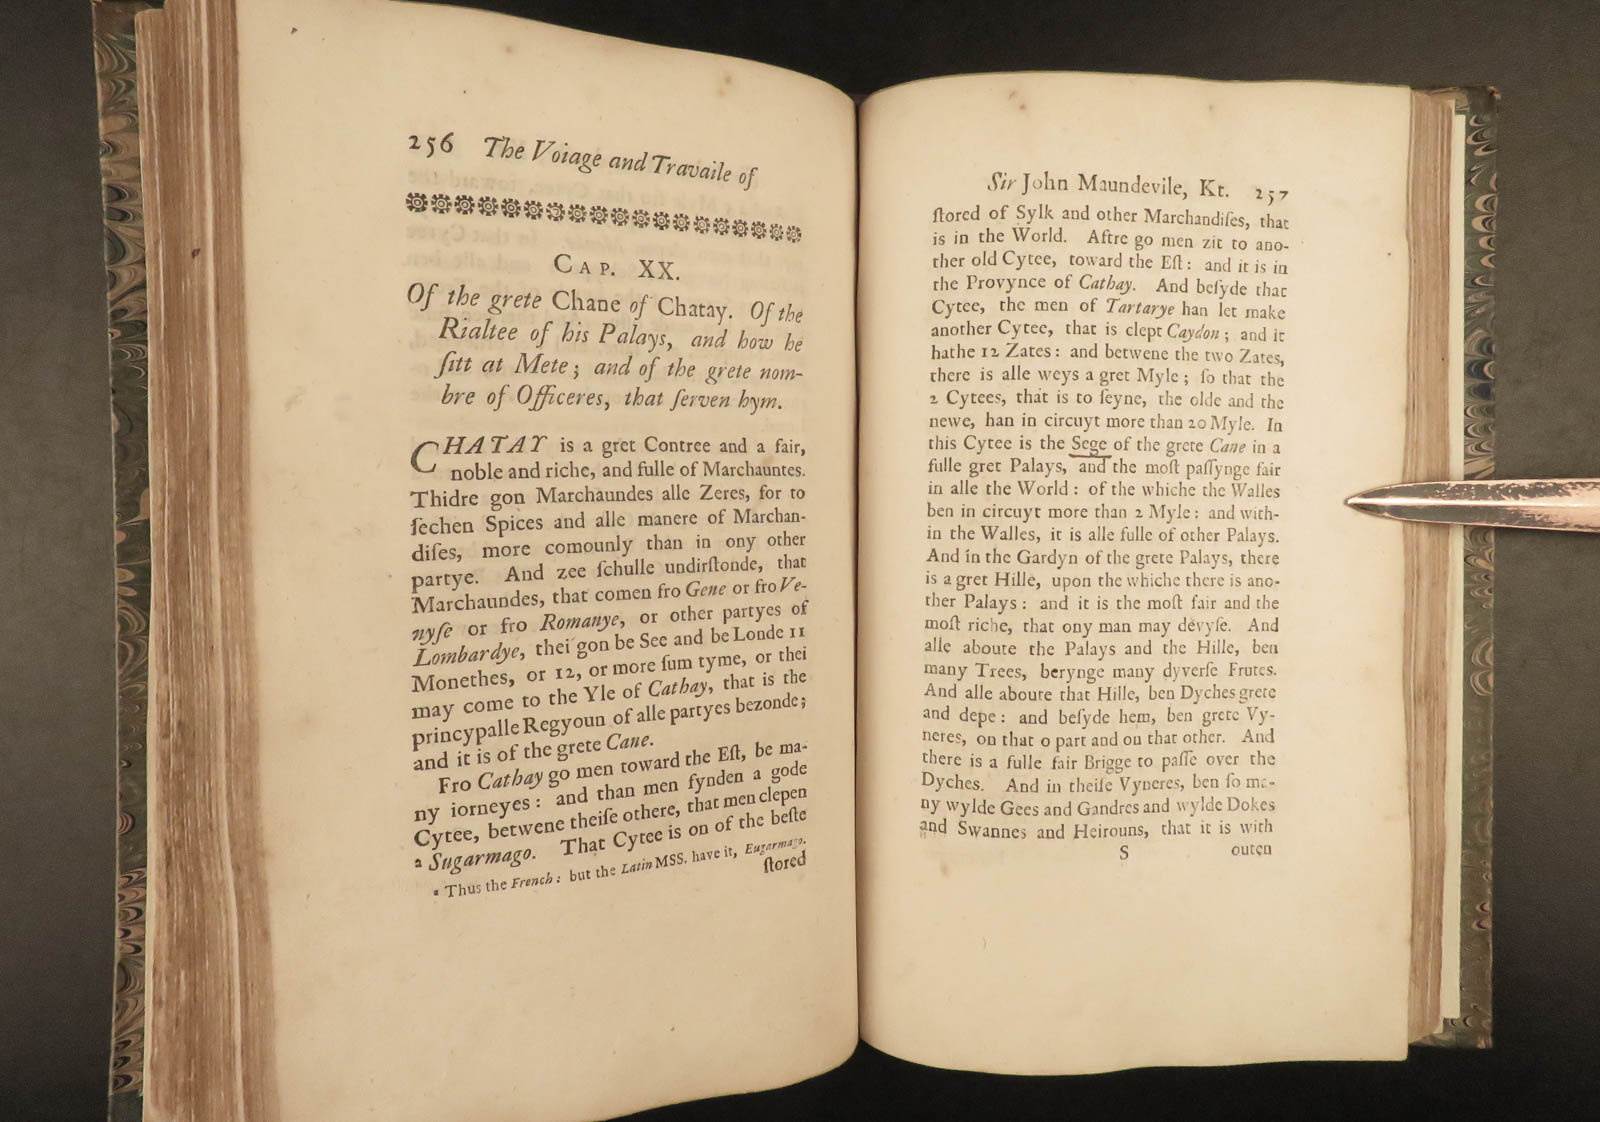 256 The Voiage and Travaile of
CAP. XX.
Of the grete Chane of Chatay. Of the
Rialtee of his Palays, and how he
ſitt at Mete; and of the grete nom-
bre of Officeres, that ſerven hym.
CHATAY is a gret Contree and a fair,
noble and riche, and fulle of Marchauntes.
Thidre gon Marchaundes alle Zeres, for to
ſechen Spices and alle manere of Marchan-
diſes, more comounly than in ony other
partye. And zee ſchulle undirſtonde, that
Marchaundes, that comen fro Gene or fro Ve-
nyſe or fro Romanye, or other partyes of
Lombardye, thei gon be See and be Londe 11
Monethes, or 12, or more ſum tyme, or thei
may come to the Yle of Cathay, that is the
princypalle Regyoun of alle partyes bezonde;
and it is of the grete Cane.
Fro Cathay go men toward the Eſt, be ma-
ny iorneyes: and than men fynden a gode
Cytee, betwene theiſe othere, that men clepen
ᵃ Sugarmago. That Cytee is on of the beſte
ᵃ Thus the French: but the Latin MSS. have it, Eugarmago.
ſtored
Sir John Maundevile, Kt. 257
ſtored of Sylk and other Marchandiſes, that
is in the World. Aftre go men zit to ano-
ther old Cytee, toward the Eſt: and it is in
the Provynce of Cathay. And beſyde that
Cytee, the men of Tartarye han let make
another Cytee, that is clept Caydon; and it
hathe 12 Zates: and betwene the two Zates,
there is alle weys a gret Myle; ſo that the
2 Cytees, that is to ſeyne, the olde and the
newe, han in circuyt more than 20 Myle. In
this Cytee is the Sege of the grete Cane in a
fulle gret Palays, and the moſt paſſynge fair
in alle the World: of the whiche the Walles
ben in circuyt more than 2 Myle: and with-
in the Walles, it is alle fulle of other Palays.
And in the Gardyn of the grete Palays, there
is a gret Hille, upon the whiche there is ano-
ther Palays: and it is the moſt fair and the
moſt riche, that ony man may devyſe. And
alle aboute the Palays and the Hille, ben
many Trees, berynge many dyverſe Frutes.
And alle aboute that Hille, ben Dyches grete
and depe: and beſyde hem, ben grete Vy-
neres, on that o part and on that other. And
there is a fulle fair Brigge to paſſe over the
Dyches. And in theiſe Vyneres, ben ſo ma-
ny wylde Gees and Gandres and wylde Dokes
and Swannes and Heirouns, that it is with
S outen